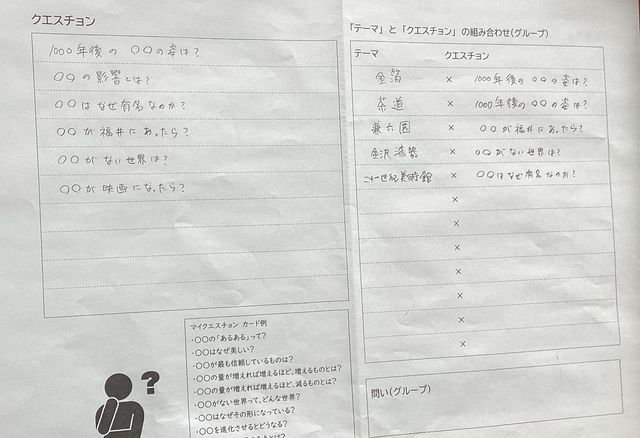 クエスチョン
1000年後の 〇〇の姿は?
〇〇の影響とは?
〇〇はなぜ有名なのか?
〇〇が福井にあったら?
〇〇がない世界は?
〇〇が映画になったら?
マイクエスチョン カード例
・〇〇の「あるある」って?
・〇〇はなぜ美しい?
・〇〇が最も信頼しているものは?
・〇〇の量が増えれば増えるほど、増えるものとは?
・〇〇の量が増えれば増えるほど、減るものとは?
・〇〇がない世界って、どんな世界?
・〇〇はなぜその形になっている?
・〇〇を進化させるとどうなる?
?
「テーマ」と「クエスチョン」の組み合わせ(グループ)
テーマ クエスチョン
金箔 × 1000年後の〇〇の姿は?
茶道 × 1000年後の〇〇の姿は?
兼六園 × 〇〇が福井にあったら?
金沢漆器 × 〇〇がない世界は?
二十一世紀美術館 × 〇〇はなぜ有名なのか?
×
×
×
×
×
×
×
問い(グループ)